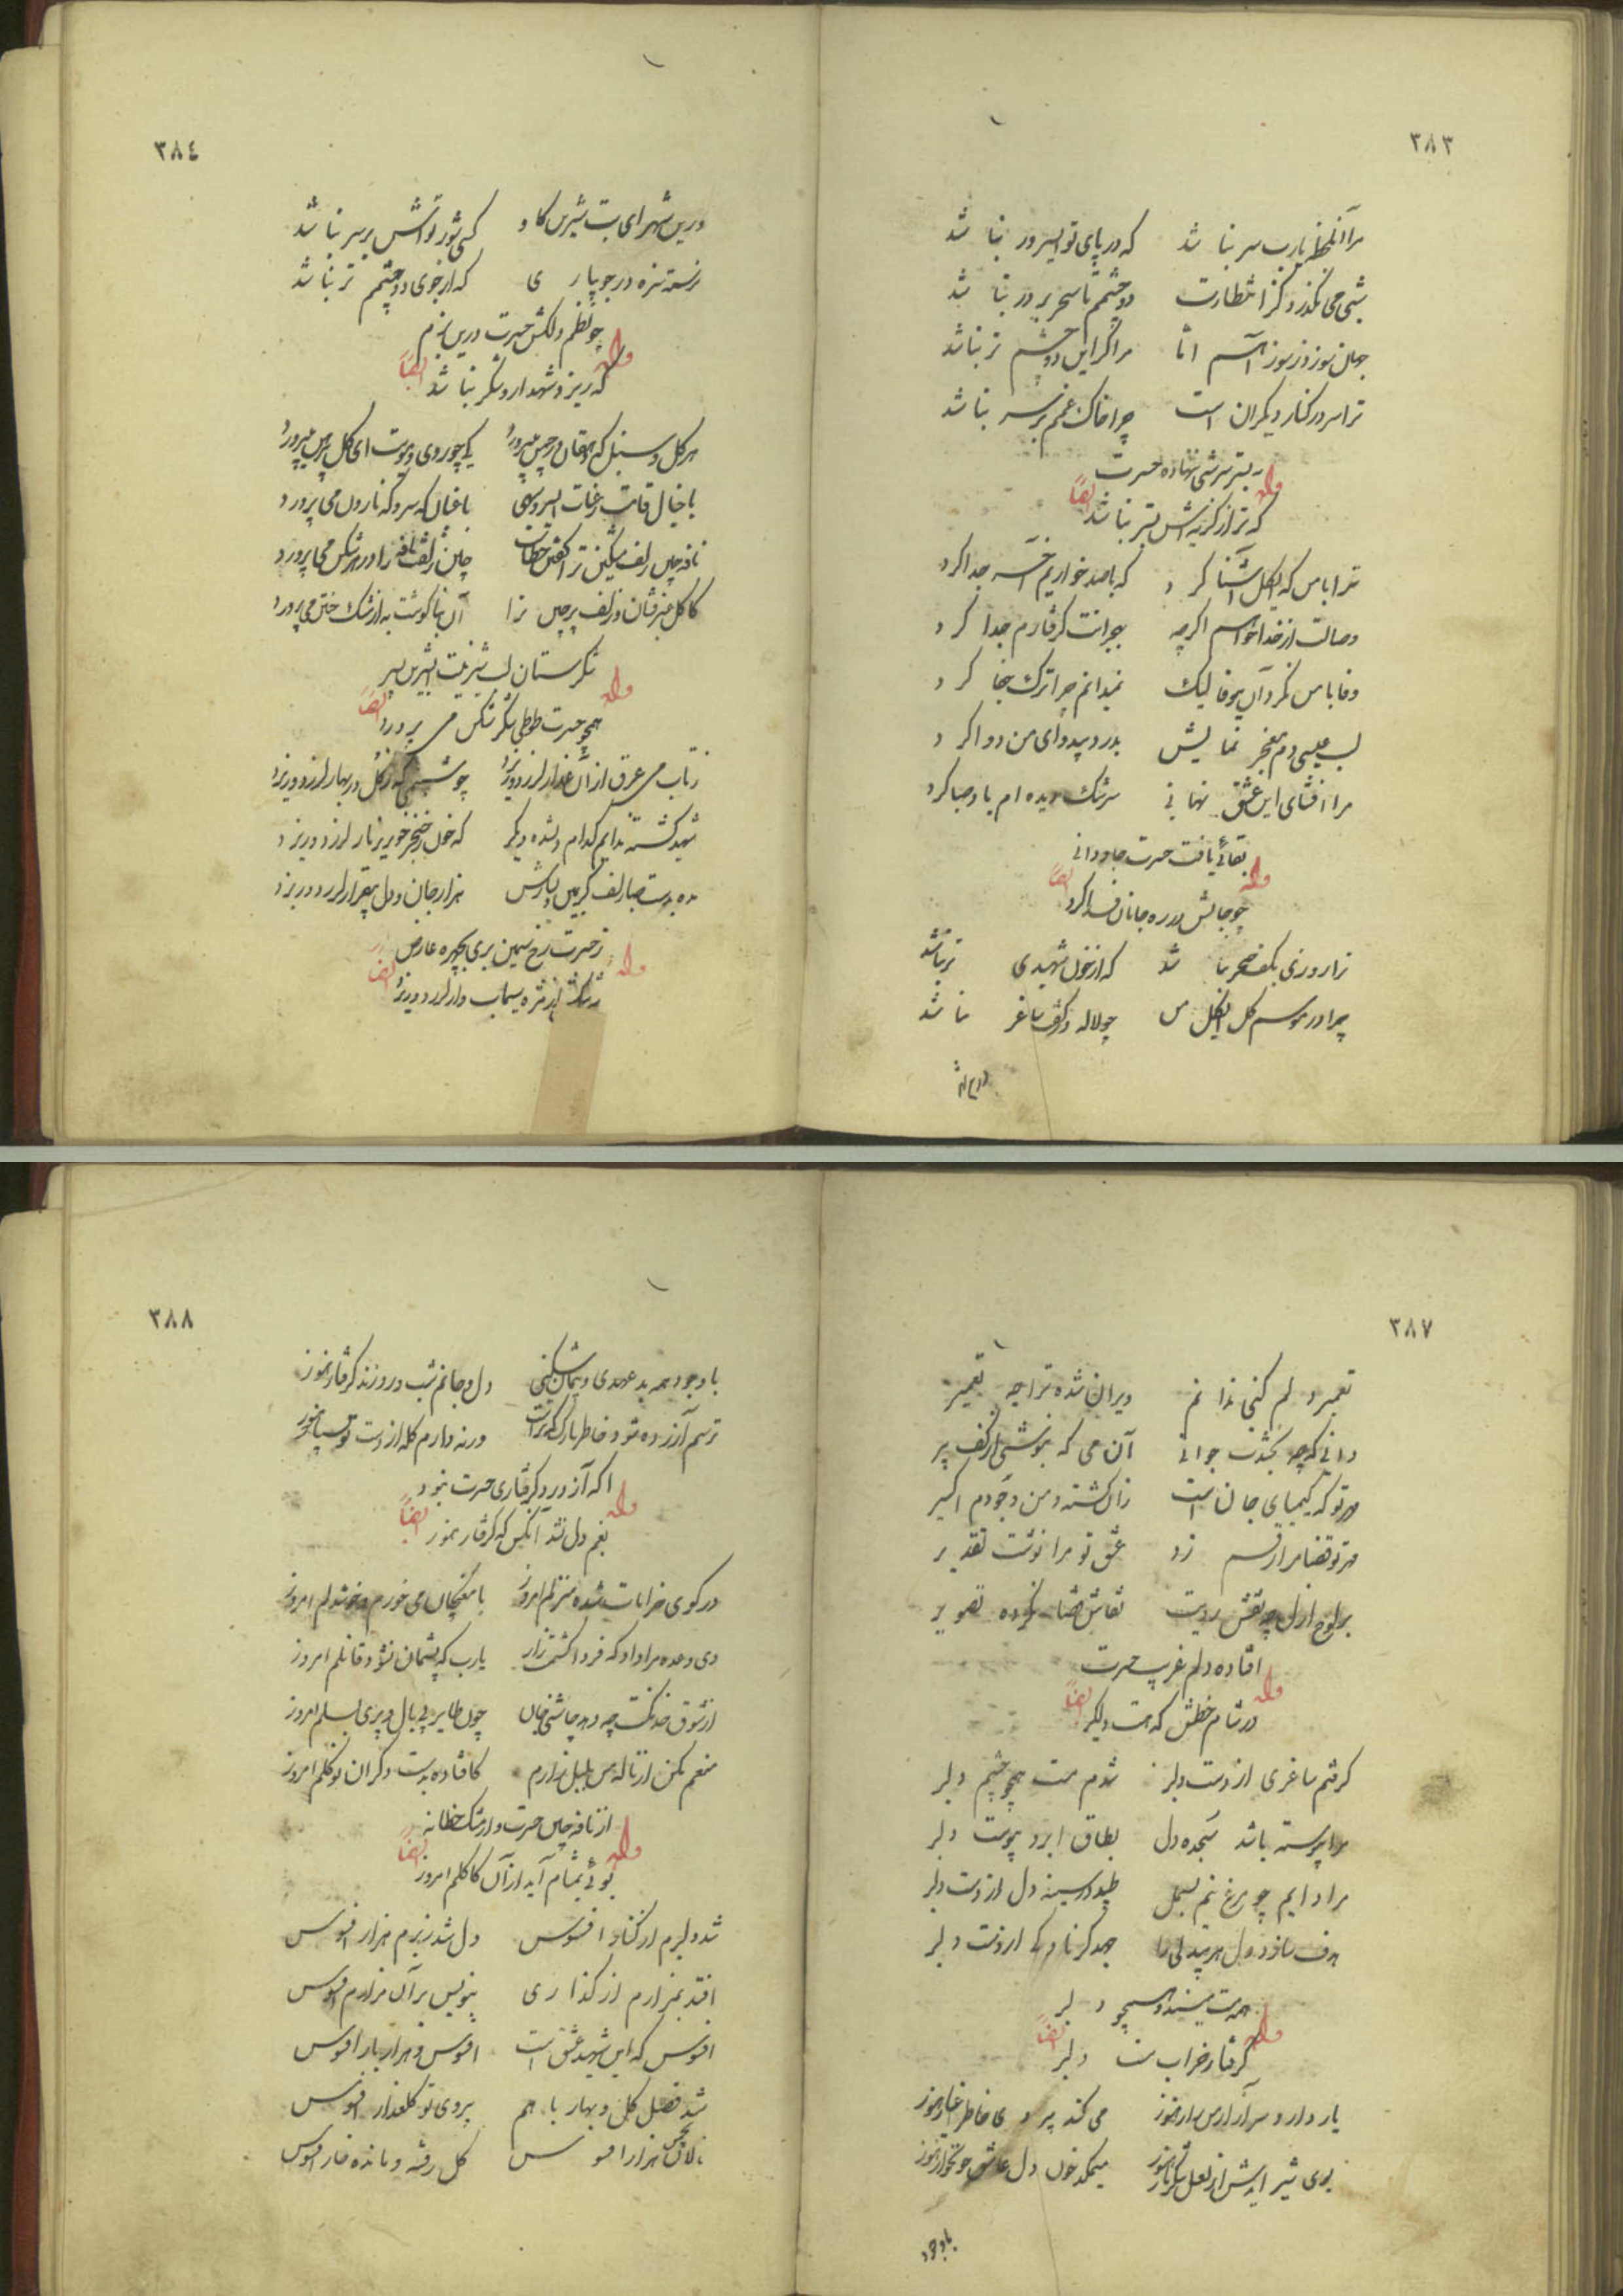 ٣٨٣
مرا آنلحظه یارب سر نباشد که در پای تو ایسرور نباشد
شبی می نگذرد کز انتظارت دو چشمم تا سحر بر در نباشد
جهان سوزد ز سوز آهم اما مرا گر این دو چشم تر نباشد
ترا سر در کنار دیگران است چرا خاک غمم بر سر نباشد
بستر سر شبی ننهاده حسرت
وله ایضاً
که تر از گریه اش بستر نباشد
ترا با من که ایگل آشنا کرد که با صد خواریم آخر جدا کرد
وصالت از خدا خواهم اگرچه بهجرانت گرفتارم خدا کرد
وفا با من نکرد آن بیوفا لیک نمیدانم چرا ترک جفا کرد
لب عیسی دم معجز نمایش بدرد بیدوای من دوا کرد
مرا افشای این عشق نهانی سرشک دیده ام باد صبا کرد
بقائی یافت حسرت جاودانی
وله ایضاً
چو جانش در ره جانان فدا کرد
ترا روزی بکف خنجر نباشد که از خون شهیدی تر نباشد
چرا در موسم گل ایگل من چو لاله در کفت ساغر نباشد
درین شهر
٣٨٤
درین شهر ای بت شیرین کا و کسی شور تواش بر سر نباشد
نرسته سبزه در جویباری که از جوی دو چشمم تر نباشد
چو نظم دلکش حسرت درین بزم
وله ایضاً
که ریزد شهد ار و شکر نباشد
هر گل و سنبل که دهقان در چمن میپرورد کی چو روی و مویت ای گل پیرهن میپرورد
با خیال قامت رعنات ای سرو سهی باغبان کی سرو که نارون می پرورد
نافه چین زلف مشکین ترا گفتن خطاست چین زلفت نافه را در هر شکن می پرورد
کاکل عنبرفشان و زلف پرچین ترا آن بناگوشت به از مشک ختن می پرورد
شکرستان لب شیرینت ای شیرین پسر
وله ایضاً
همچو حسرت طوطی شکر شکن می پرورد
ز تاب می عرق از آن عذار لرزد و ریزد چو شبنمی که ز گل در بهار لرزد و ریزد
شهید گشته ندانم کدام دلشده دیگر که خون ز خنجر خونریز یار لرزد و ریزد
مده بدست صبا زلف کز پیین و یسارش هزار جان و دل بیقرار لرزد و ریزد
ز حسرت رخ سیمین بری بچهره عارض
وله ایضاً
سرشک از مژه سیماب وار لرزد و ریزد
٣٨٧
تعمیر دلم کنی ندانم ویران شده تراچه تعمیر
دانی که چه بخشدت جوانی آن می که بنوشی از کف پیر
مهر تو که کیمیای جان است زان گشته مس وجودم اکسیر
مهر تو قضا مرا رقم زد عشق تو مرا نوشت تقدیر
بر لوح ازل چو نقش رویت نقاش قضا نکرده تصویر
افتاده دلم غریب حسرت
وله ایضاً
در شام خطش که هست دلگیر
گرفتم ساغری از دست دلبر شدم مست همچو چشم دلبر
مرا پیوسته باشد سجده دل بطاق ابرو پیوست دلبر
مرا دایم چو مرغ نیم بسمل طپد در سینه دل از دست دلبر
هدف سازد دل هر بیدلی را جهد گر ناوکی از دست دلبر
همه مست میند و همچو دلبر
وله ایضاً
گرفتار خراب مست دلبر
یار دارد سر آزار من زار هنوز می کند پیروی خاطر اغیار هنوز
بوی شیر آیدش از لعل شکربار هنوز میمکد خون دل عاشق خونخوار هنوز
باوجود
٣٨٨
با وجود همه بد عهدی و پیمان شکنی دل و جانم شب و روزند گرفتار هنوز
ترسم آزرده شود خاطر نازک که تراست ورنه دارم گله از دست تو بسیار هنوز
آگه از درد گرفتاری حسرت نبود
وله ایضاً
بغم دل نشد آنکس که گرفتار هنوز
در کوی خرابات شده منزلم امروز با مغبچگان می خورم و خوشدلم امروز
دی وعده مرا داد که فردا کشمت زار یارب که پشیمان نشود قاتلم امروز
از شوق خدنگت چه دهد چاشنی جان چون طایر بی بال و پری بسملم امروز
منعم مکن از ناله من بلبل زارم کافتاده بدست دگران نو گلم امروز
از نافه چین حسرت و از مشک خطا نه
وله ایضاً
بوئی بمشام آید از آن کاکلم امروز
شد دلبرم از کنار افسوس دل شد ز برم هزار افسوس
افتد بمزارم ار گذاری بنویس بر آن مزارم افسوس
افسوس که این شهید عشق است افسوس و هزار بار افسوس
شد فصل گل و بهار با هم بروی تو گلعذار افسوس
نالان بچمن هزار افسوس گل رفته و مانده خار افسوس